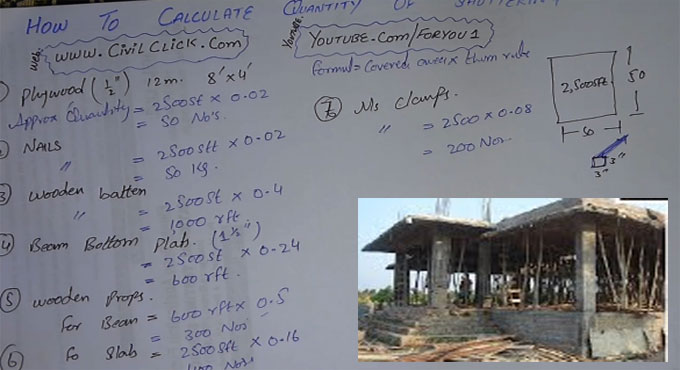 HOW TO CALCULATE QUANTITY OF SHUTTERING
Web: www.CivilClick.Com
Youtube: YOUTUBE.Com/FORYOU1
1) Plywood (1/2") 12m. 8'x4'
Approx Quantity = 2500Sft x 0.02
= 50 No's.
2) NAILS
" = 2500sft x 0.02
= 50 Kg.
3) Wooden batten
" = 2500Sft x 0.4
= 1000 rft.
4) Beam Bottom Plab. (1 1/2")
= 2500Sft x 0.24
= 600 rft.
5) Wooden Props.
For Beam = 600 rft x 0.5
= 300 Nos
6) Fo Slab = 2500 Sft x 0.16
= 400 Nos.
Formul = Covered area x thum rule
7) Ms Clamps.
" = 2500 x 0.08
= 200 Nos.
2,500Sft
50
50
3"
3"